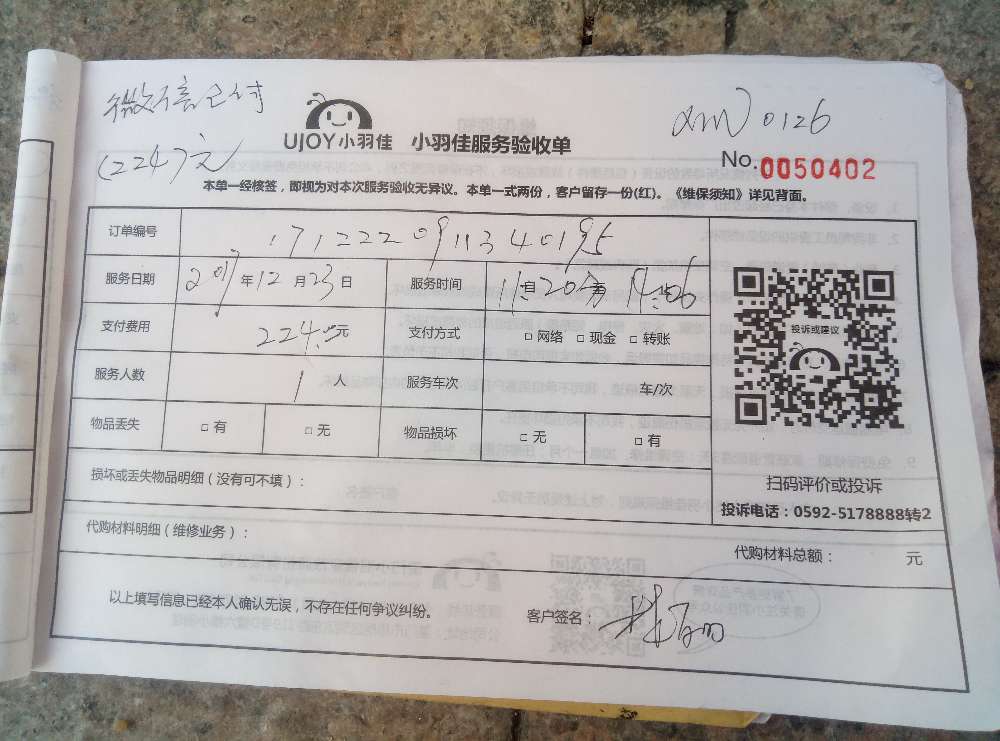 微信已付
(224)元
UJOY小羽佳 小羽佳服务验收单
xm 0126
No.0050402
本单一经核签，即视为对本次服务验收无异议。本单一式两份，客户留存一份(红)。《维保须知》详见背面。
订单编号 1712220911340195
服务日期 2017年12月23日 服务时间 11:20 14:06
支付费用 224.00元 支付方式 □ 网络 □ 现金 □ 转账
服务人数 1 人 服务车次 车/次
物品丢失 □ 有 □ 无 物品损坏 □ 无 □ 有
投诉或建议
扫码评价或投诉
投诉电话：0592-5178888转2
损坏或丢失物品明细（没有可不填）：
代购材料明细（维修业务）： 代购材料总额： 元
以上填写信息已经本人确认无误，不存在任何争议纠纷。 客户签名：